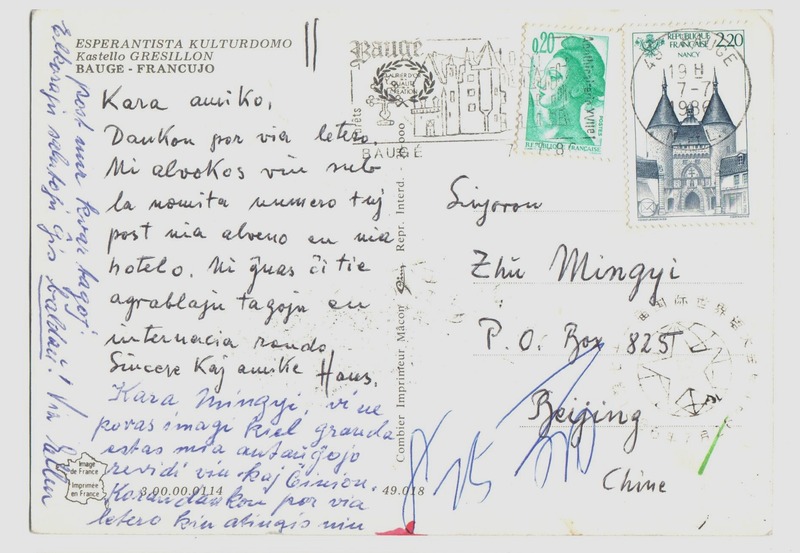 ESPERANTISTA KULTURDOMO
Kastello GRESILLON
BAUGE - FRANCUJO
Kara amiko,
Dankon por via letero.
Mi alvokos vin sub
la nomita numero tuj
post nia alveno en nia
hotelo. Ni ĝuas ĉi tie
agrablajn tagojn en
internacia rondo.
Sincere kaj amike Hans.
Kara Mingyi, vi ne
povas imagi kiel granda
estas mia antaŭĝojo
revidi vin kaj Ĉinion.
Koran dankon por via
letero kiu atingis nin
post nur kvar tagoj.
Elkorajn salutojn ĝis baldaŭ! Via
Image
de France
Imprimée
en France
3.00.00.0114
49.018
Combier Imprimeur Mâcon
Repr. Interd.
Baugé
BAUGÉ
0,20
POSTES
REPUBLIQUE FRANÇAISE
REPUBLIQUE
FRANÇAISE
2,20
NANCY
19 H
7-7
1986
Sinjoron
Zhu Mingyi
P.O. Box 825
Beijing
Chine